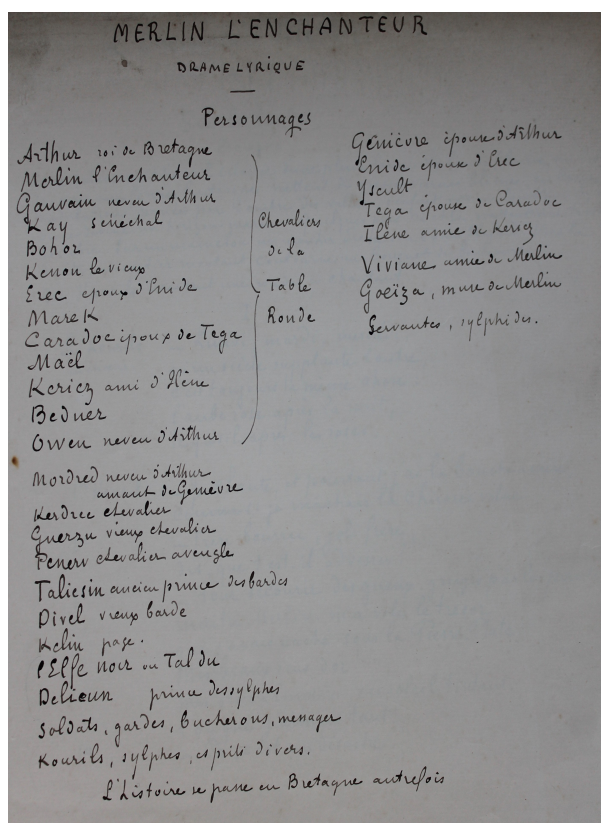 MERLIN L'ENCHANTEUR
DRAME LYRIQUE
Personnages
Arthur roi de Bretagne
Merlin l'Enchanteur
Gauvain neveu d'Arthur
Kay sénéchal
Bohor
Kenon le vieux
Erec époux d'Enide
Marek
Caradoc époux de Tega
Maël
Kericz ami d'Ilène
Beduer
Owen neveu d'Arthur
Chevaliers
de la
Table
Ronde
Mordred neveu d'Arthur
amant de Genièvre
chevalier
vieux chevalier
chevalier aveugle
Taliesin ancien prince des bardes
Divel vieux barde
Kelin page.
l'Elfe noir ou Tal du
prince des sylphes
Soldats, gardes, bucherons, menager
Kourils, sylphes, esprits divers.
L'Histoire se passe en Bretagne autrefois
Genièvre épouse d'Arthur
Enide épouse d'Erec
Yseult
Tega épouse de Caradoc
Ilène amie de Kericz
Viviane amie de Merlin
Goeïza, muse de Merlin
Servantes, sylphides.